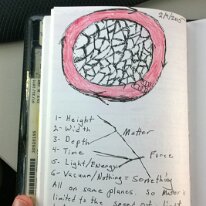 2/9/2005
1- Height
2- Width
3- Depth
Matter
4- Time
Force
5- Light/Energy
6- Vacuum/Nothing = Something
All on same planes. So Matter's
limited to the